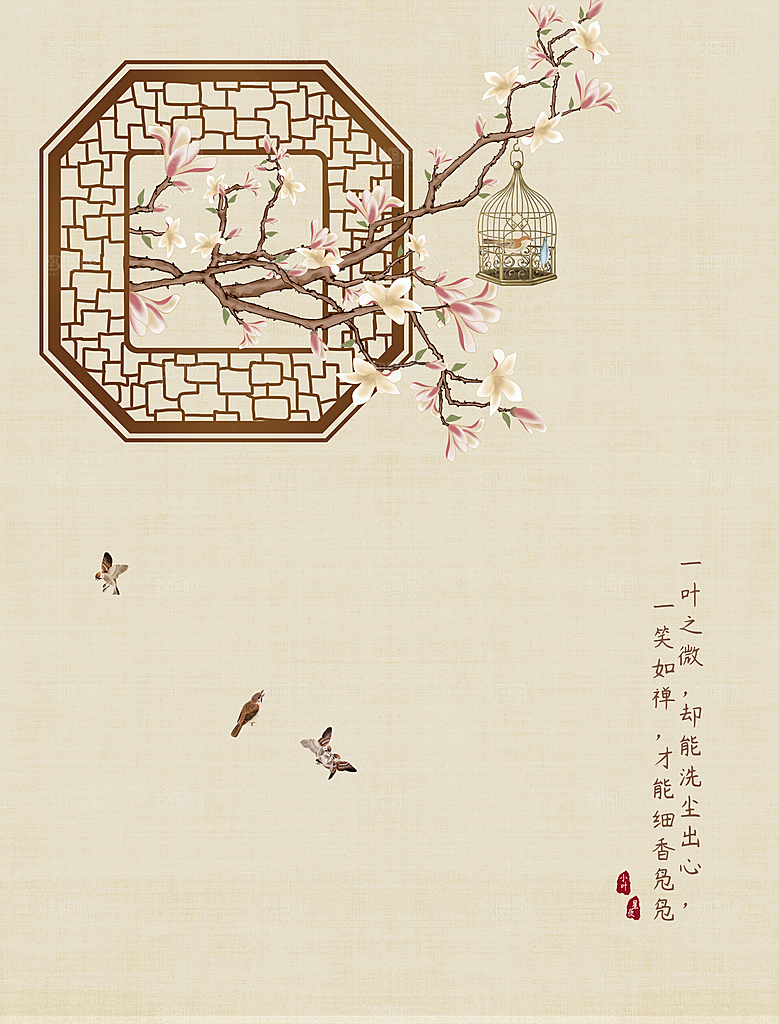 一叶之微，却能洗尘出心，
一笑如禅，才能细香凫凫
小叶